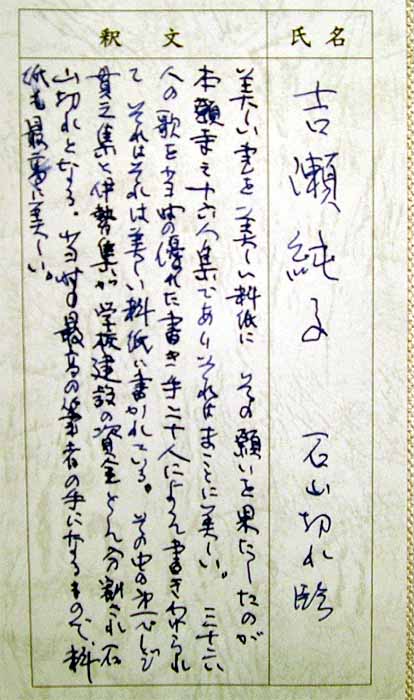 氏名
吉瀬純子 石山切れ臨
釈文
美しい書を美しい料紙に その願いを果たしたのが
本願寺三十六人集でありそれはまことに美しい。 三十六
人の歌を当時の優れた書き手二十人によって書きわけられ
て それはそれは美しい料紙に書かれている。その中の
貫之集と伊勢集が 学校建設の資金として分割され石
山切れとなる。当時の最高の筆者の手になるもので、料
紙も最高に美しい。